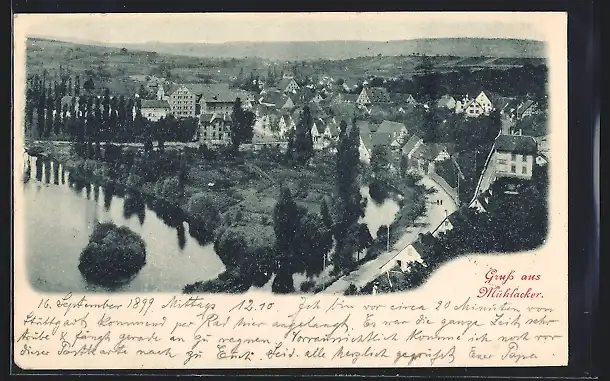 Gruß aus
Mühlacker.
16. September 1899 Mittags 12.10 Ich bin vor circa 20 Minuten von
Stuttgart kommend per Rad hier angelangt. Es war die ganze Zeit sehr
trübe & fängt gerade an zu regnen. Voraussichtlich komme ich noch vor
dieser Postkarte nach zu Euch. Seid alle herzlich gegrüßt Euer Papa